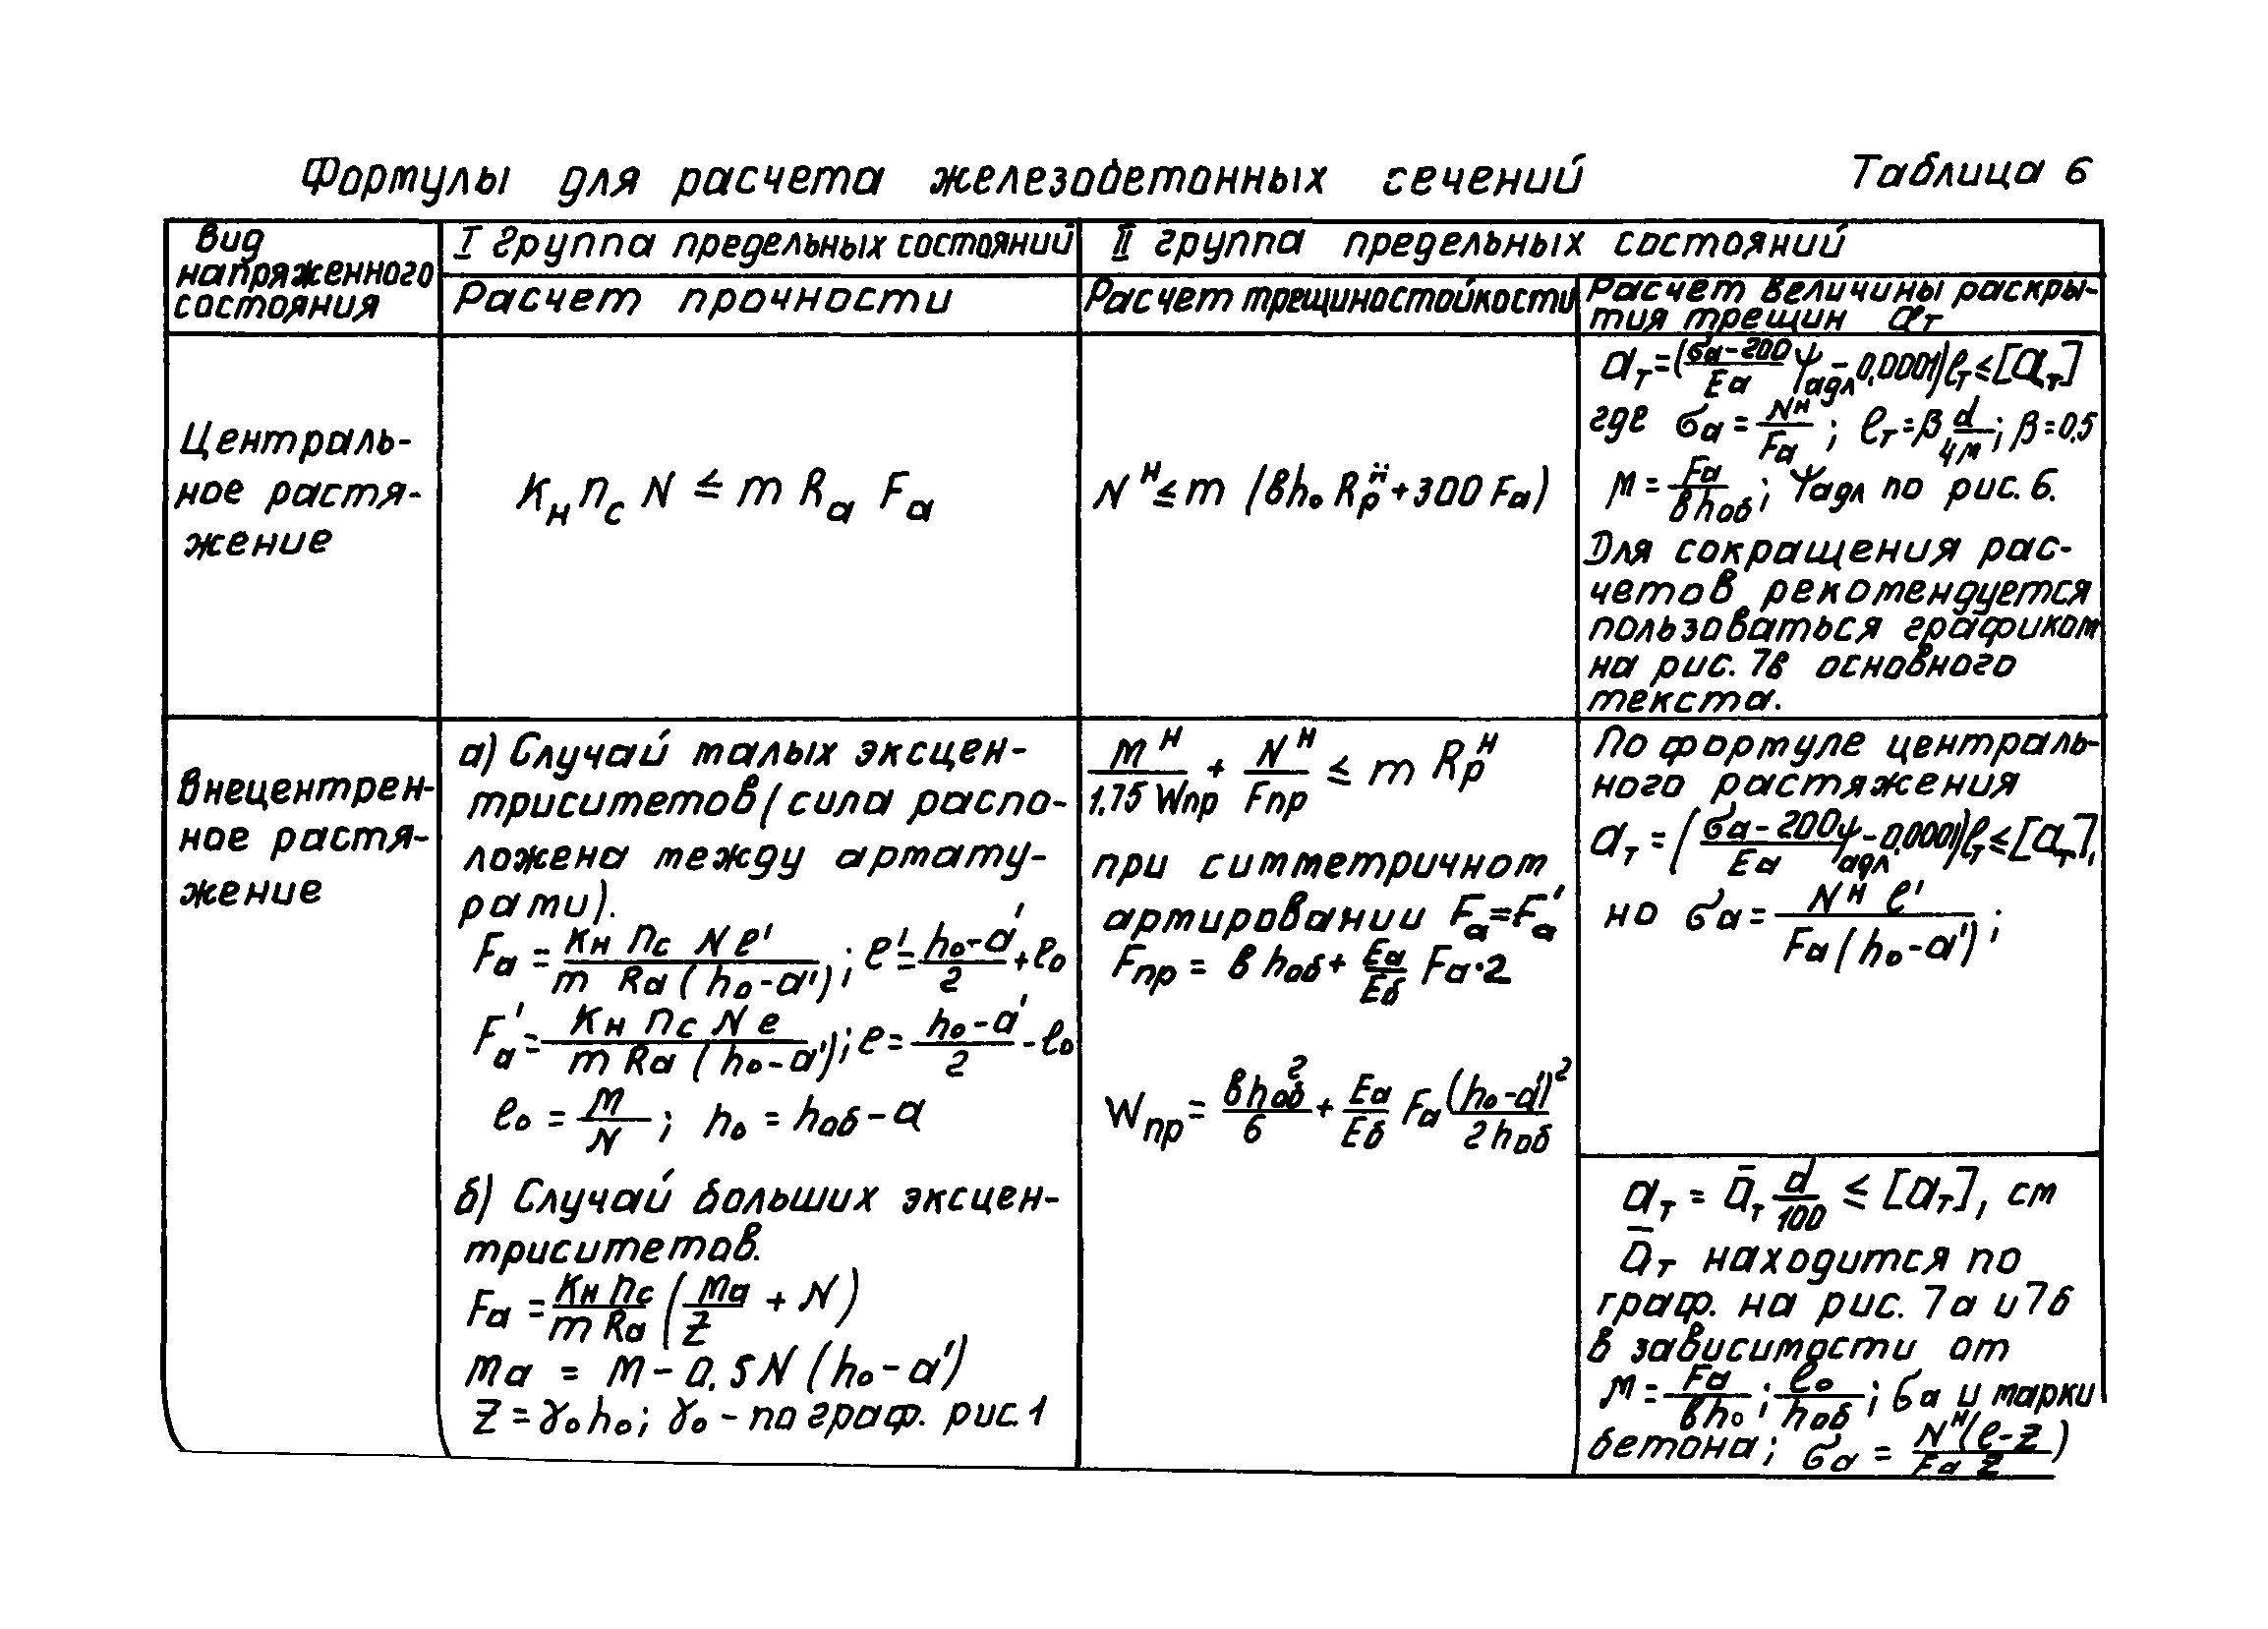 Формулы для расчета железобетонных сечений
Таблица 6
Вид
напряженного
состояния
I группа предельных состояний
II группа предельных состояний
Расчет прочности
Расчет трещиностойкости
Расчет величины раскры-
тия трещин aт
Централь-
ное растя-
жение
Kн nс N ≤ m Rа Fа
N^н ≤ m (вh₀ Rр^н + 300 Fа)
aт = (σа - 200 / Eа ψадл - 0,0001) ℓт ≤ [aт]
где σа = N^н / Fа ; ℓт = β d / 4μ ; β = 0,5
μ = Fа / вhоб ; ψадл по рис. 6.
Для сокращения рас-
четов рекомендуется
пользоваться графиком
на рис. 7в основного
текста.
Внецентрен-
ное растя-
жение
а) Случай малых эксцен-
триситетов (сила распо-
ложена между армату-
рами).
Fа = Kн nс N e' / m Rа (h₀ - a') ; e' = h₀ - a' / 2 + e₀
F'а = Kн nс N e / m Rа (h₀ - a') ; e = h₀ - a' / 2 - e₀
e₀ = M / N ; h₀ = hоб - a
б) Случай больших эксцен-
триситетов.
Fа = Kн nс / m Rа (Mа / Z + N)
Mа = M - 0,5 N (h₀ - a')
Z = γ₀ h₀ ; γ₀ - по граф. рис. 1
M^н / 1,75 Wпр + N^н / Fпр ≤ m Rр^н
при симметричном
армировании Fа = F'а
Fпр = в hоб + Eа / Eб Fа · 2
Wпр = вhоб² / 6 + Eа / Eб Fа (h₀ - a')² / 2 hоб
По формуле централь-
ного растяжения
aт = (σа - 200 / Eа ψадл - 0,0001) ℓт ≤ [aт],
но σа = N^н e' / Fа (h₀ - a') ;
aт = āт d / 100 ≤ [aт], см
āт находится по
граф. на рис. 7а и 7б
в зависимости от
μ = Fа / вh₀ ; e₀ / hоб ; σа и марки
бетона ; σа = N^н (e - Z) / Fа Z